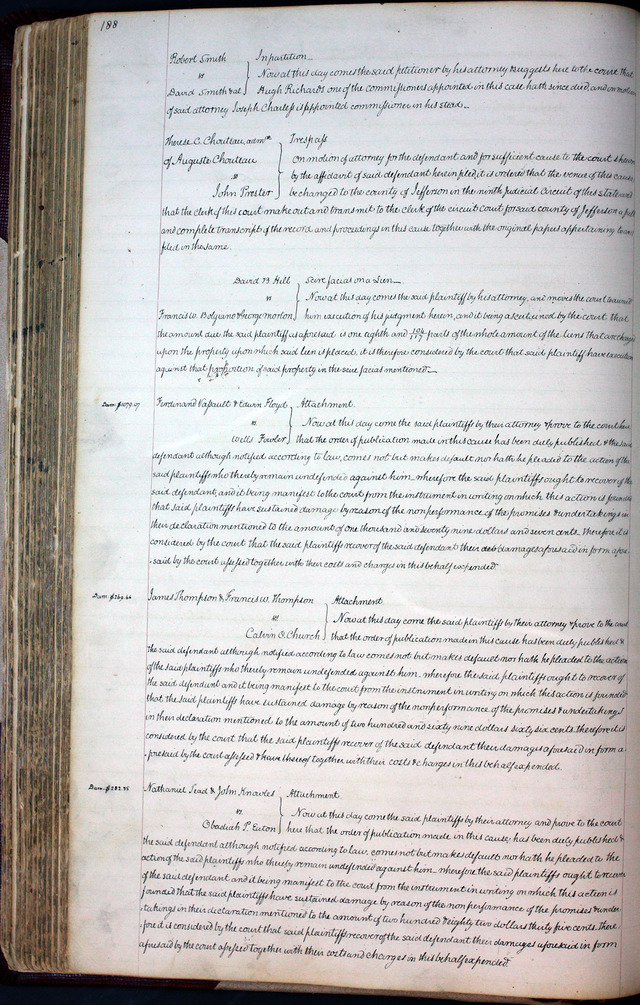 188
Robert Smith } In partition
vs } Now at this day comes the said petitioner by his attorney & suggests here to the court that
David Smith et al } Hugh Richards one of the commissioners appointed in this case hath since died, and on motion
of said attorney Joseph Charless is appointed commissioner in his stead
Therese C. Chouteau, admx } Trespass
of Auguste Chouteau } On motion of attorney for the defendant and for sufficient cause to the court shewn
vs } by the affidavit of said defendant herein filed, it is ordered that the venue of this cause
John Prester } be changed to the county of Jefferson in the ninth judicial circuit of this state and
that the clerk of this court make out and transmit to the clerk of the circuit court for said county of Jefferson a full
and complete transcript of the record and proceedings in this cause together with the original papers appertaining to and
filed in the same.
David B Hill } Scire facias on a Lien
vs } Now at this day comes the said plaintiff by his attorney, and moves the court to award
Francis W. Bolgiano & George Morton } him execution of his judgment herein, and it being ascertained by the court that
the amount due the said plaintiff as aforesaid is one eighth and parts of the whole amount of the Liens that are charged
upon the property upon which said lien is placed, it is therefore considered by the court that said plaintiff have execution
against that proportion of said property in the scire facias mentioned
Dam: $1079.07 Ferdinand Vassault & Edwin Floyd } Attachment
vs } Now at this day come the said plaintiffs by their attorney & prove to the court here
Wells Fowler } that the order of publication made in this cause has been duly published & the said
defendant although notified according to law, comes not but makes default nor hath he pleaded to the action of the
said plaintiffs who thereby remain undefended against him. wherefore the said plaintiffs ought to recover of the
said defendant, and it being manifest to the court from the instrument in writing on which this action is founded
that said plaintiffs have sustained damage by reason of the nonperformance of the promises & undertakings in
their declaration mentioned to the amount of one thousand and seventy nine dollars and seven cents. Therefore it is
considered by the court that the said plaintiffs recover of the said defendant their debt damages aforesaid in form afore
-said by the court assessed together with their costs and charges in this behalf expended
Dam: $269.66 James Thompson & Francis W. Thompson } Attachment
vs } Now at this day come the said plaintiffs by their attorney & prove to the court
Calvin O. Church } that the order of publication made in this cause has been duly published &
the said defendant although notified according to law comes not but makes default nor hath he pleaded to the action
of the said plaintiffs who thereby remain undefended against him. wherefore the said plaintiffs ought to recover of
the said defendant and it being manifest to the court from the instrument in writing on which this action is founded
that the said plaintiffs have sustained damage by reason of the nonperformance of the promises & undertakings
in their declaration mentioned to the amount of two hundred and sixty nine dollars sixty six cents. therefore it is
considered by the court that the said plaintiffs recover of the said defendant their damages aforesaid in form a
-foresaid by the court assessed & have thereof together with their costs & charges in this behalf expended.
Dam: $282.35 Nathaniel Tead & John Knowles } Attachment
vs } Now at this day come the said plaintiffs by their attorney and prove to the court
Obadiah P. Eaton } here that the order of publication made in this cause, has been duly published &
the said defendant although notified according to law. comes not but makes default nor hath he pleaded to the
action of the said plaintiffs who thereby remain undefended against him. wherefore the said plaintiffs ought to recover
of the said defendant and it being manifest to the court from the instrument in writing on which this action is
founded that the said plaintiffs have sustained damage by reason of the non performance of the promises & under
takings in their declaration mentioned to the amount of two hundred & eighty two dollars thirty five cents. There
fore it is considered by the court that said plaintiffs recover of the said defendant their damages aforesaid in form
aforesaid by the court assessed together with their costs and charges in this behalf expended.